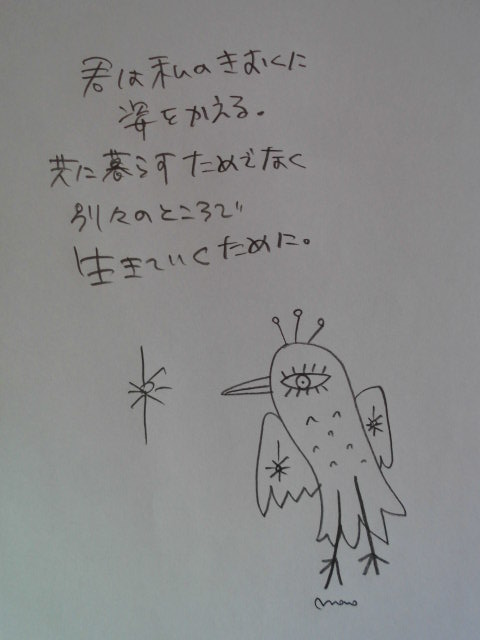 君は私のきおくに
姿をかえる。
共に暮らすためでなく
別々のところで
生きていくために。
mono